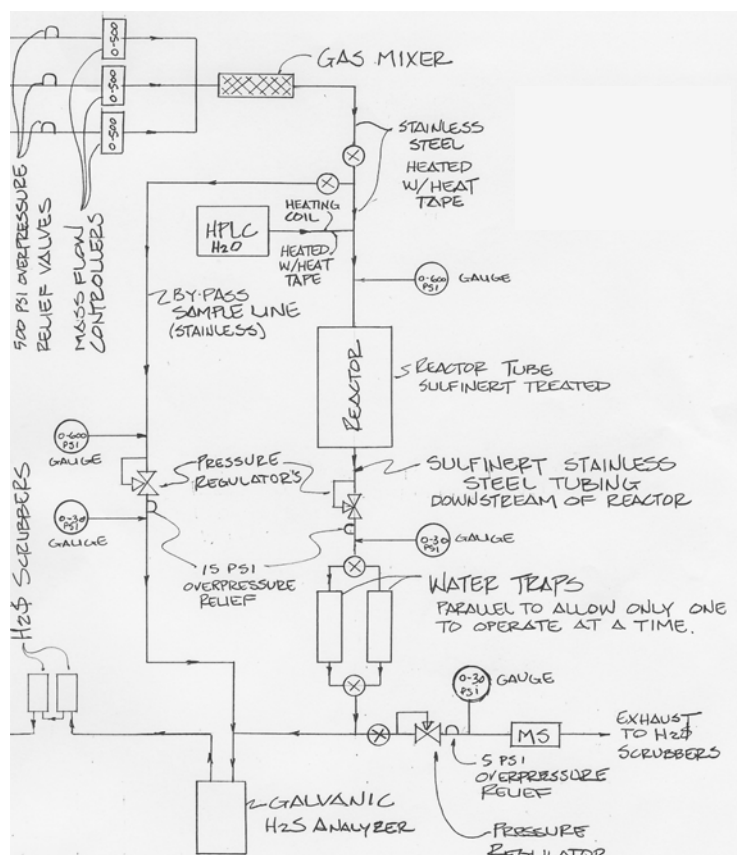 0-500
0-500
0-500
GAS MIXER
STAINLESS
STEEL
HEATED
W/HEAT
TAPE
500 PSI OVERPRESSURE
RELIEF VALVES
MASS FLOW
CONTROLLERS
HPLC
H2O
HEATING
COIL
HEATED
W/HEAT
TAPE
0-600
PSI
GAUGE
BY-PASS
SAMPLE LINE
(STAINLESS)
REACTOR
REACTOR TUBE
SULFINERT TREATED
0-600
PSI
GAUGE
PRESSURE
REGULATOR'S
SULFINERT STAINLESS
STEEL TUBING
DOWNSTREAM OF REACTOR
0-30
PSI
GAUGE
0-30
PSI
GAUGE
15 PSI
OVERPRESSURE
RELIEF
WATER TRAPS
PARALLEL TO ALLOW ONLY ONE
TO OPERATE AT A TIME.
H2S SCRUBBERS
0-30
PSI
GAUGE
MS
EXHAUST
TO H2S
SCRUBBERS
5 PSI
OVERPRESSURE
RELIEF
GALVANIC
H2S ANALYZER
PRESSURE
REGULATOR